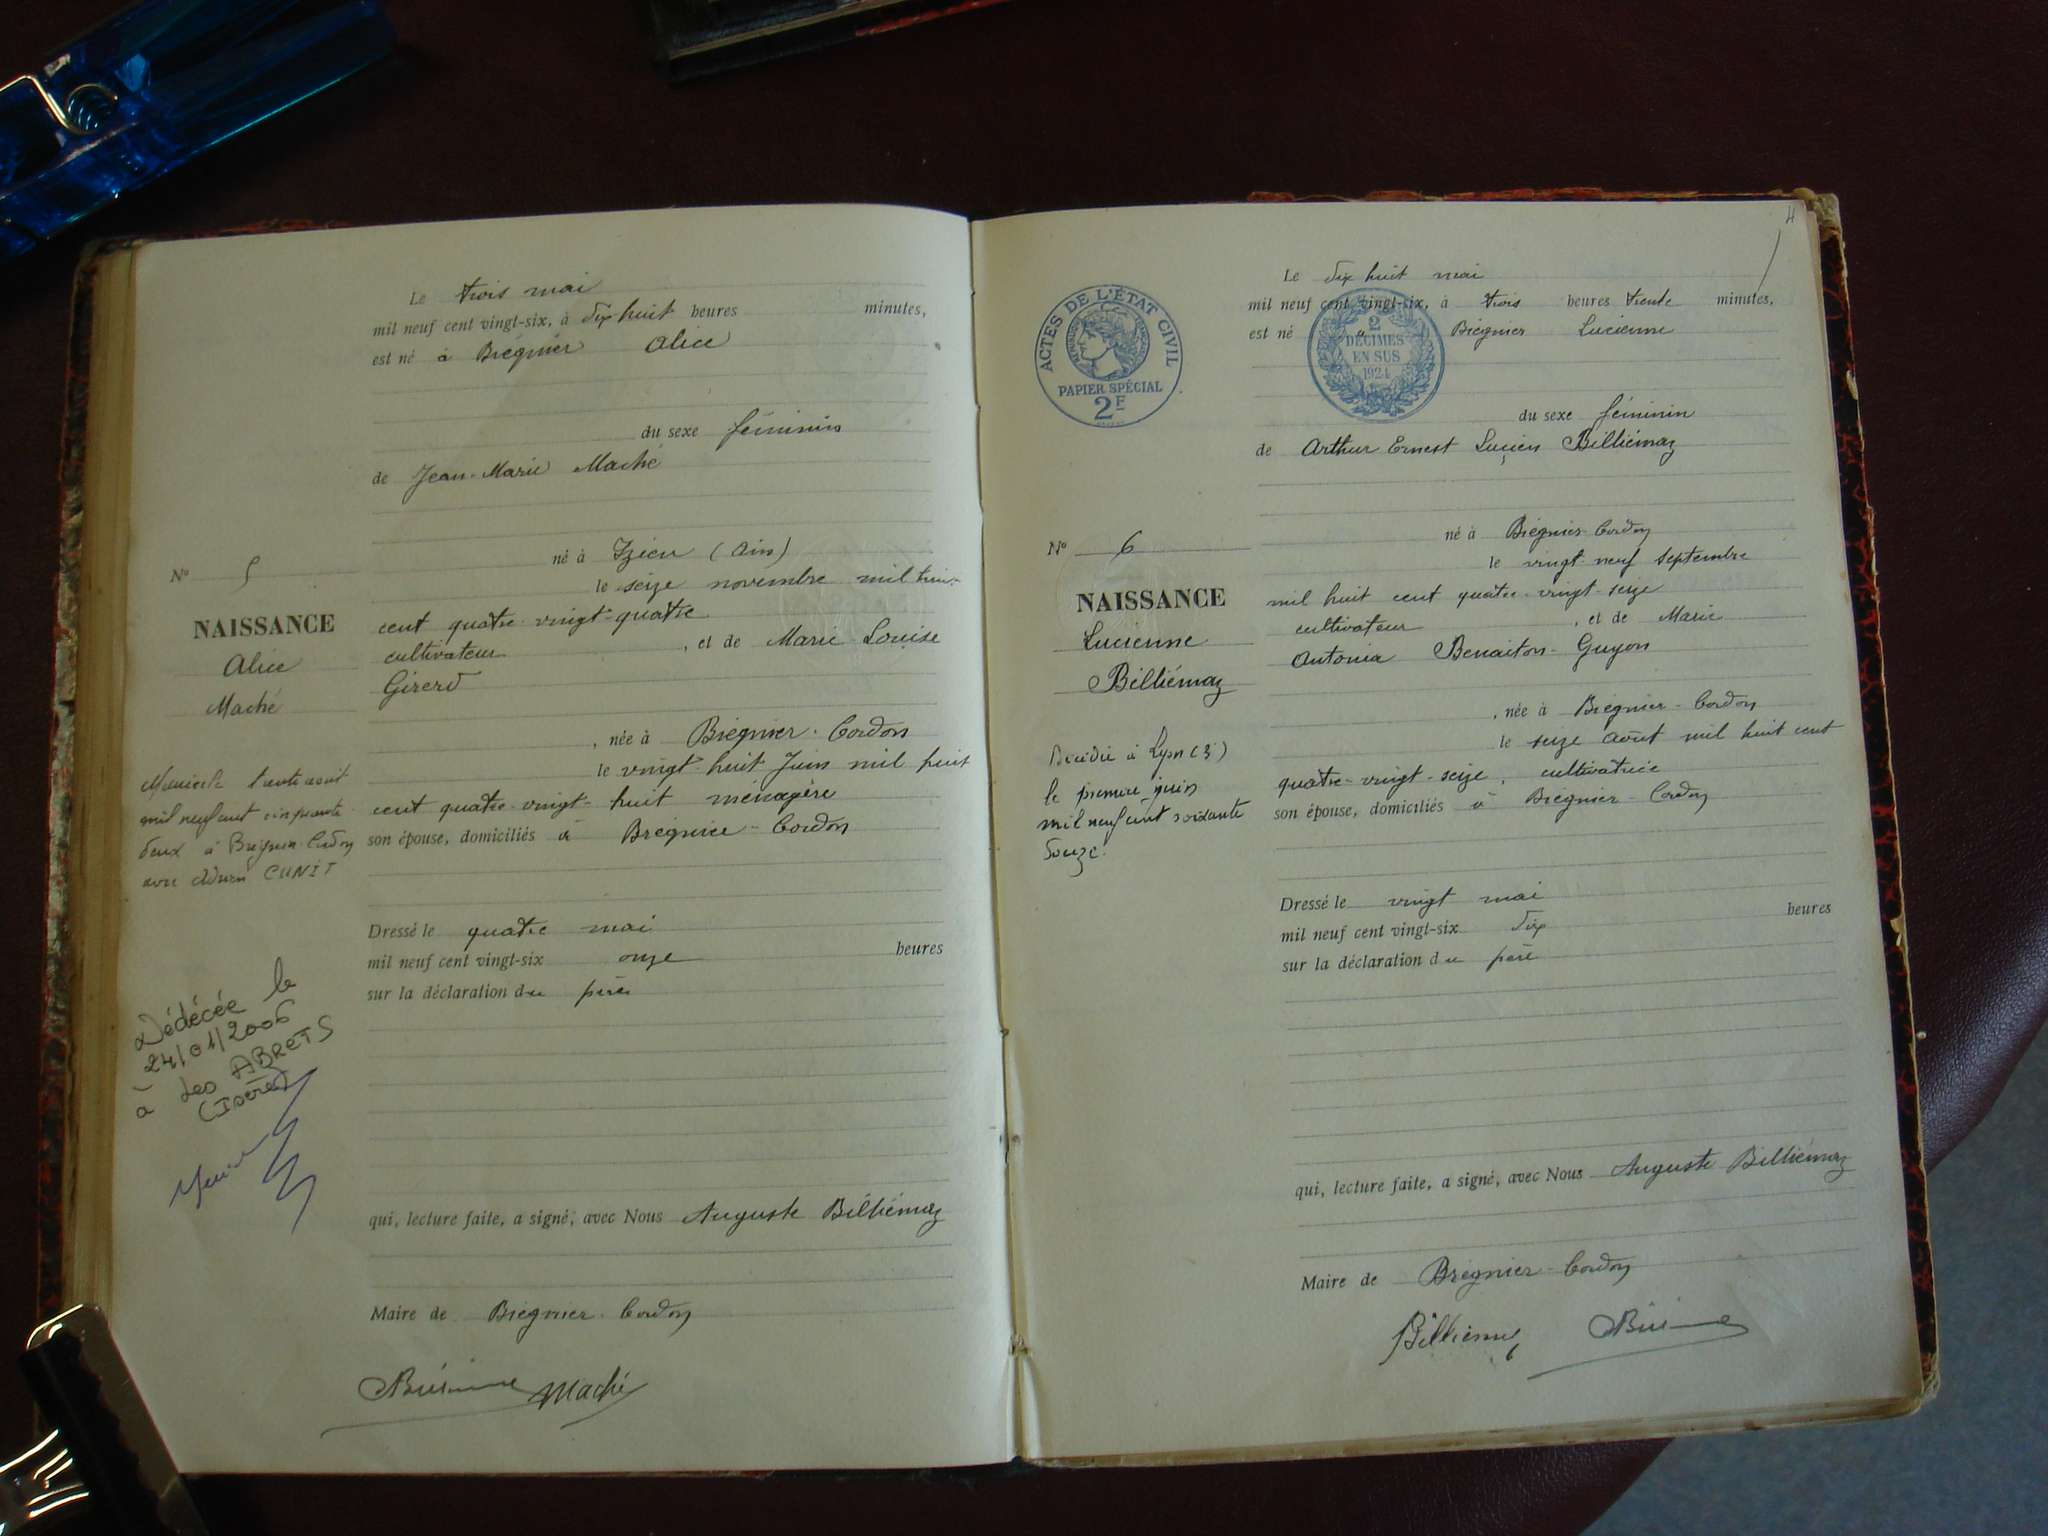 Le trois mai
mil neuf cent vingt-six, à dix huit heures minutes,
est né à Brégnier Alice
du sexe féminin
de Jean-Marie Maché
né à Izieu (Ain)
le seize novembre mil huit
cent quatre-vingt-quatre
cultivateur, et de Marie-Louise
Girerd
, née à Brégnier-Cordon
le vingt-huit Juin mil huit
cent quatre-vingt-huit ménagère
son épouse, domiciliés à Brégnier-Cordon
Dressé le quatre mai
mil neuf cent vingt-six onze heures
sur la déclaration du père
qui, lecture faite, a signé, avec Nous Auguste Billiémaz
Maire de Brégnier-Cordon
Maché
N° 5
NAISSANCE
Alice
Maché
trente août
mil neuf cent cinquante
deux à Brégnier-Cordon
avec CUNIT
Dédécée le
24/01/2006
à Les ABRETS
(Isère)
4
Le dix huit mai
mil neuf cent vingt-six, à trois heures trente minutes,
est né à Brégnier Lucienne
du sexe féminin
de Arthur Ernest Lucien Billiémaz
né à Brégnier-Cordon
le vingt-neuf septembre
mil huit cent quatre-vingt-seize
cultivateur, et de Marie
Antonia Benaiton-Guyon
, née à Brégnier-Cordon
le seize août mil huit cent
quatre-vingt-seize, cultivatrice
son épouse, domiciliés à Brégnier-Cordon
Dressé le vingt mai
mil neuf cent vingt-six dix heures
sur la déclaration du père
qui, lecture faite, a signé, avec Nous Auguste Billiémaz
Maire de Brégnier-Cordon
Billiémaz
ACTES DE L'ÉTAT CIVIL
PAPIER SPÉCIAL
2F
2
DÉCIMES
EN SUS
1924
N° 6
NAISSANCE
Lucienne
Billiémaz
Décédée à Lyon (3)
le premier juin
mil neuf cent soixante
douze.